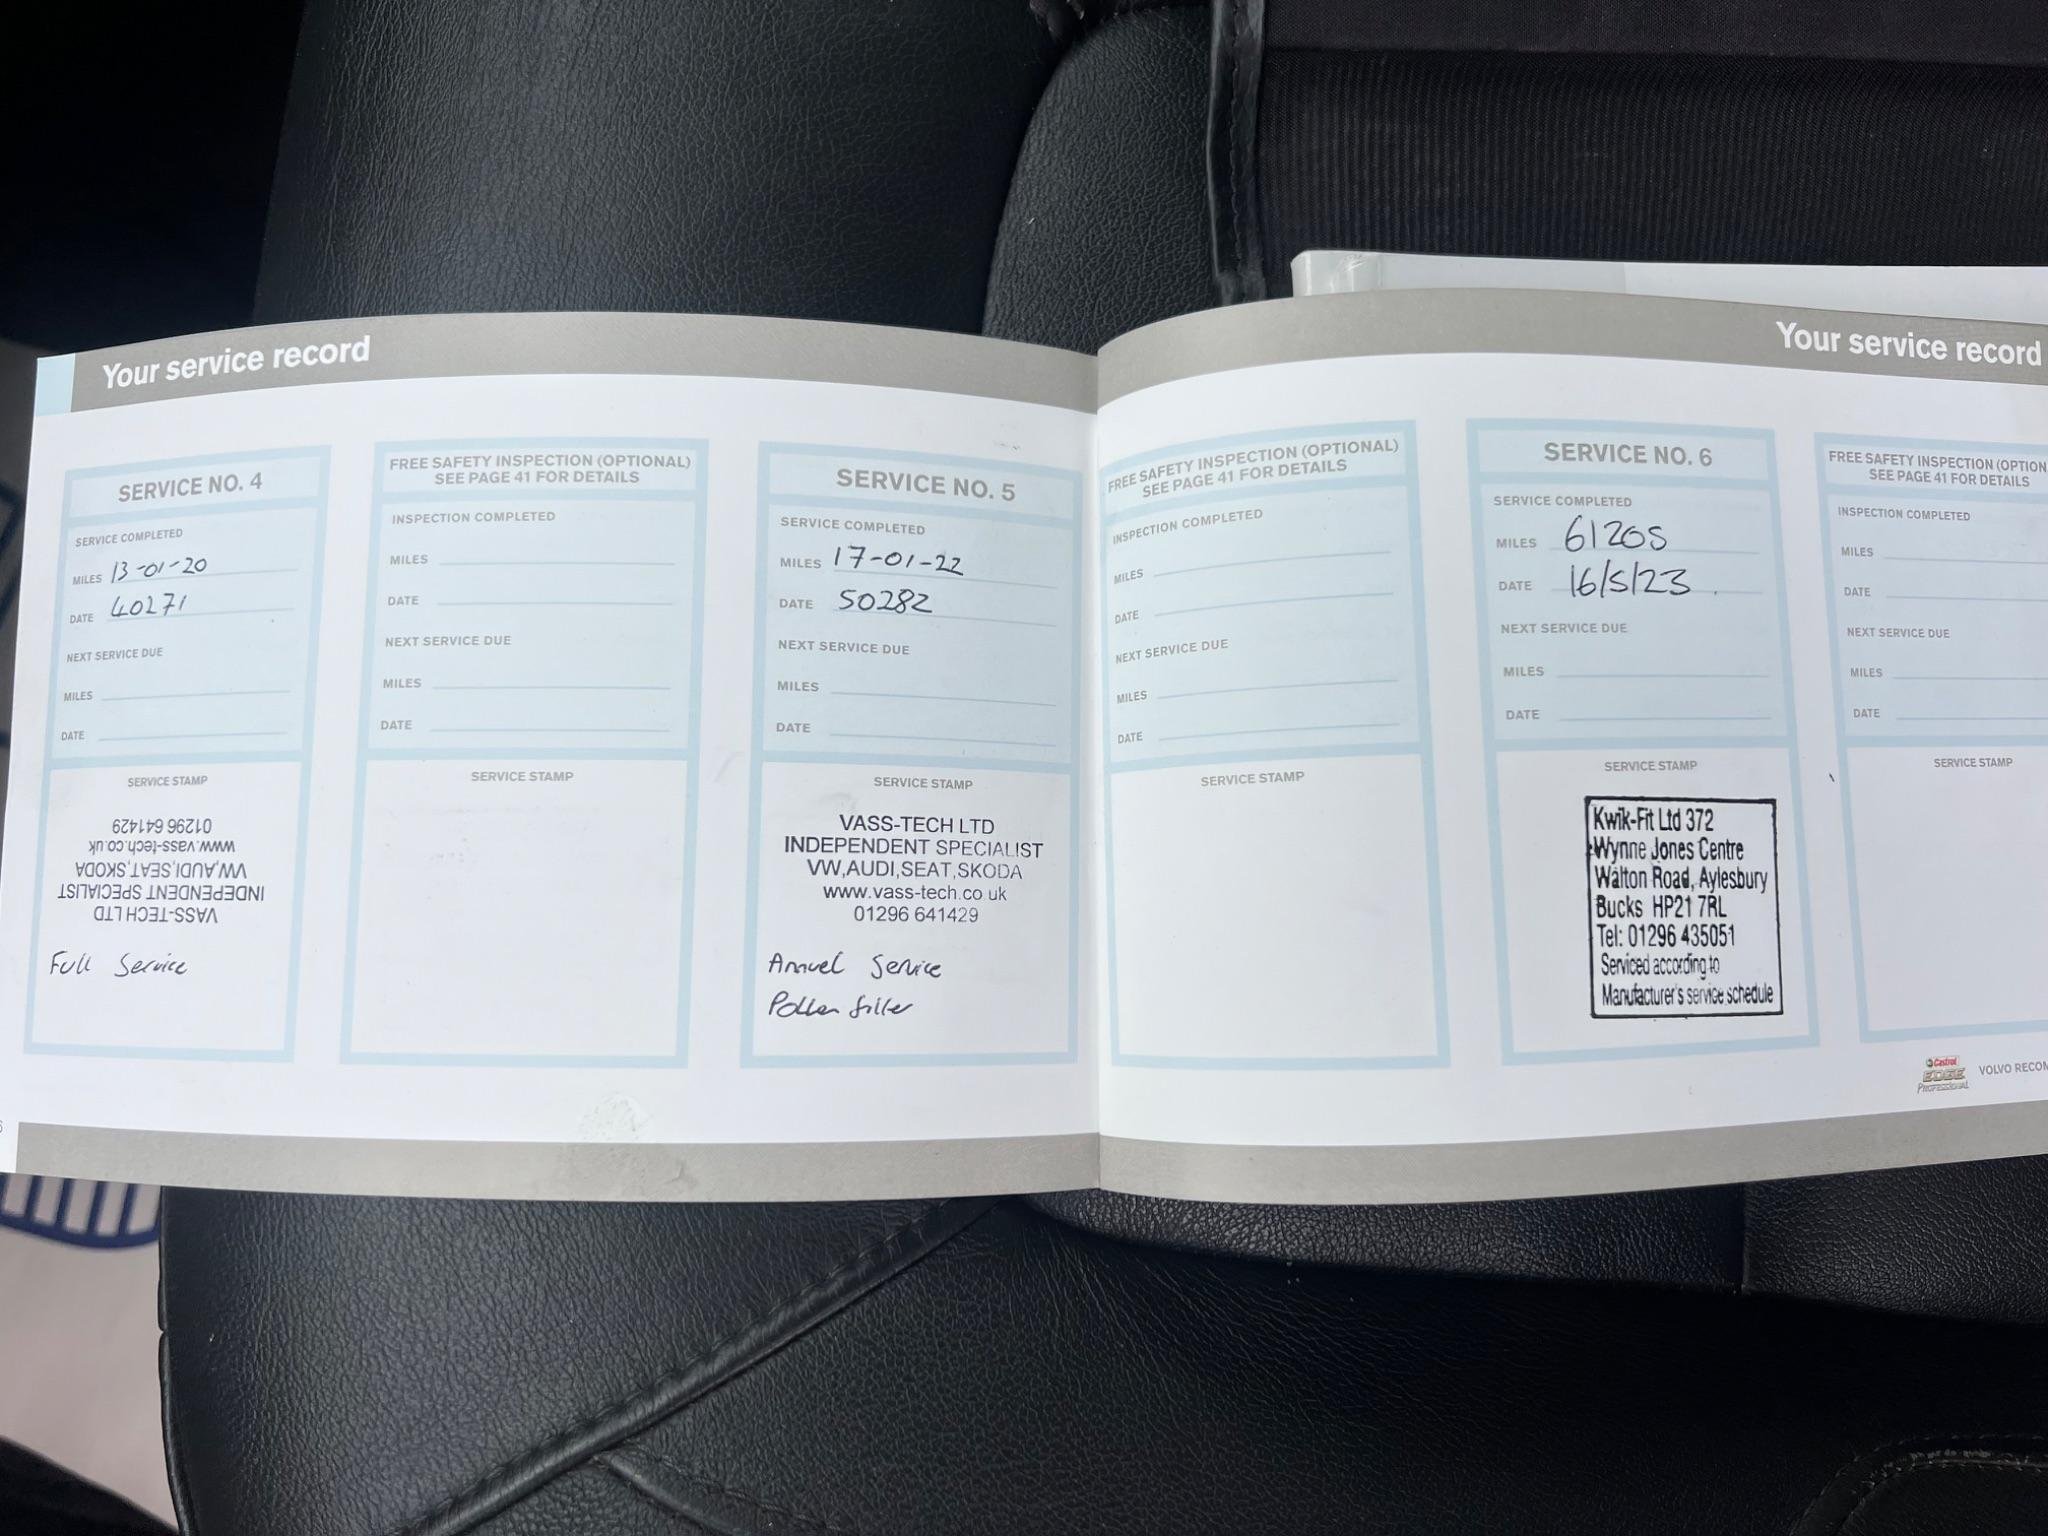 Your service record
SERVICE NO. 4
SERVICE COMPLETED
MILES 13-01-20
DATE 40271
NEXT SERVICE DUE
MILES
DATE
SERVICE STAMP
VASS-TECH LTD
INDEPENDENT SPECIALIST
VW,AUDI,SEAT,SKODA
www.vass-tech.co.uk
01296 641429
Full Service
FREE SAFETY INSPECTION (OPTIONAL)
SEE PAGE 41 FOR DETAILS
INSPECTION COMPLETED
MILES
DATE
NEXT SERVICE DUE
MILES
DATE
SERVICE STAMP
SERVICE NO. 5
SERVICE COMPLETED
MILES 17-01-22
DATE 50282
NEXT SERVICE DUE
MILES
DATE
SERVICE STAMP
VASS-TECH LTD
INDEPENDENT SPECIALIST
VW,AUDI,SEAT,SKODA
www.vass-tech.co.uk
01296 641429
Annuel Service
Pollen filter
6
Your service record
FREE SAFETY INSPECTION (OPTIONAL)
SEE PAGE 41 FOR DETAILS
INSPECTION COMPLETED
MILES
DATE
NEXT SERVICE DUE
MILES
DATE
SERVICE STAMP
SERVICE NO. 6
SERVICE COMPLETED
MILES 61205
DATE 16/5/23
NEXT SERVICE DUE
MILES
DATE
SERVICE STAMP
Kwik-Fit Ltd 372
Wynne Jones Centre
Walton Road, Aylesbury
Bucks HP21 7RL
Tel: 01296 435051
Serviced according to
Manufacturer's service schedule
FREE SAFETY INSPECTION (OPTION
SEE PAGE 41 FOR DETAILS
INSPECTION COMPLETED
MILES
DATE
NEXT SERVICE DUE
MILES
DATE
SERVICE STAMP
Castrol
EDGE
PROFESSIONAL
VOLVO RECOM